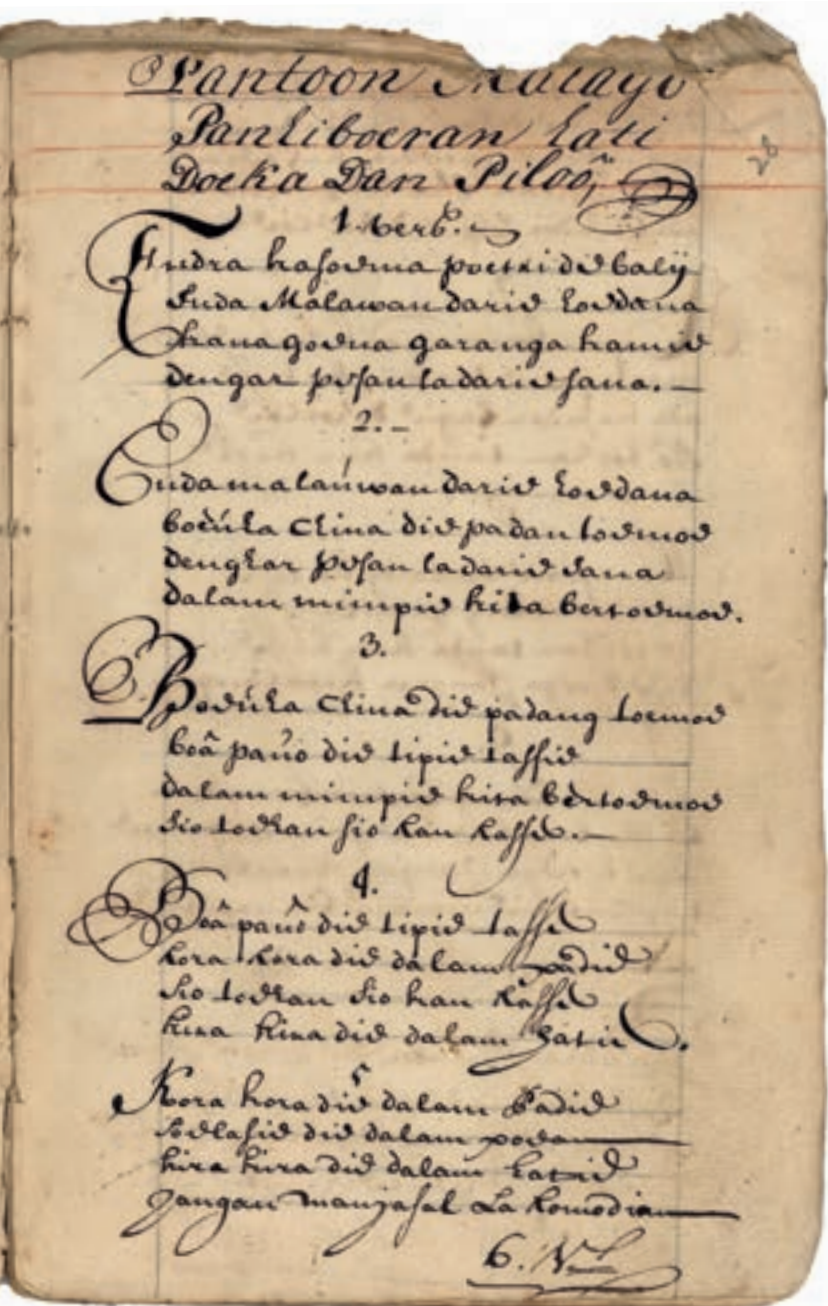 Pantoon Malayo
Panhiboeran hati
Doeka Dan Piloo,
28
1. Vers.
Indra kasoema poetri die balij
Cuda Malawan darie hoedana
karna goena garanga kamie
dengar pesan la darie sana.
2.
Cuda malaúwan darie hoedana
boeúha China die padan toemoe
denghar pesan la darie sana
dalam mimpie kita bertoemoe.
3.
Boeúha China die padang toemoe
boâ paúo die tipie tassie
dalam mimpie kita bertoemoe
sio toehan sio kan kasse.
4.
Boâ paúo die tipie tasse
kora kora die dalam padie
sio toehan sio kan kasse
kira kira die dalam hatie.
5
Kora kora die dalam padie
soelasie die dalam
kira kira die dalam hatie
jangan manjasal la komodian
6. Vl